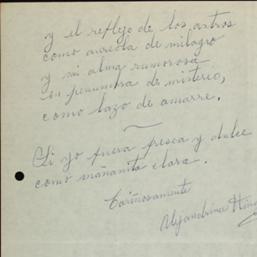 y el reflejo de los astros
como aureola de milagro
y mi alma rumorosa
en penumbra de misterio,
como lazo de amarre.
Si yo fuera fresca y dulce
como mañanita clara.
Cariñosamente
Alejandrina